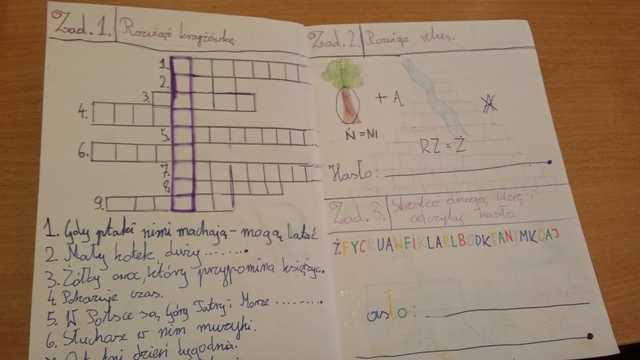 Zad. 1. Rozwiąż krzyżówkę
1.
2.
3.
4.
5.
6.
7.
8.
9.
1. Gdy ptaki nimi machają - mogą latać
2 Mały kotek, duży........
3. Żółty owoc, który przypomina księżyc.
4 Pokazuje czas.
5. W Polsce są góry Tatry i Morze .........
6. Słuchasz w nim muzyki.
dzień tygodnia.
Zad. 2. Rozwiąż rebus.
+ A
Ń = NI
RZ = Ż
A
Hasło:
Zad. 3.
odczytaj hasło
asło: